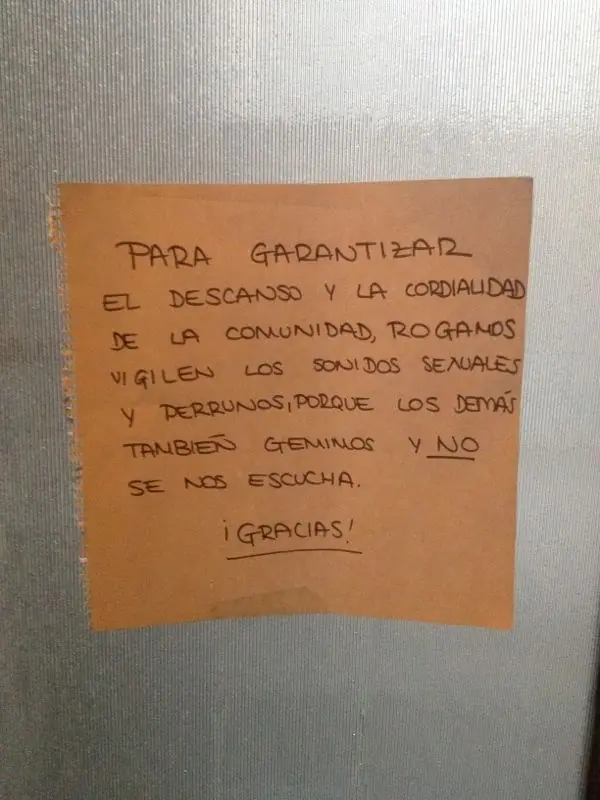 PARA GARANTIZAR
EL DESCANSO Y LA CORDIALIDAD
DE LA COMUNIDAD, ROGAMOS
VIGILEN LOS SONIDOS SEXUALES
Y PERRUNOS, PORQUE LOS DEMÁS
TAMBIEÑ GEMIMOS Y NO
SE NOS ESCUCHA.
¡GRACIAS!